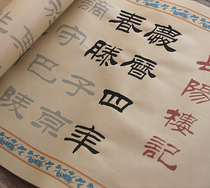 陽樓記
慶曆四年
春滕子京
守巴陵